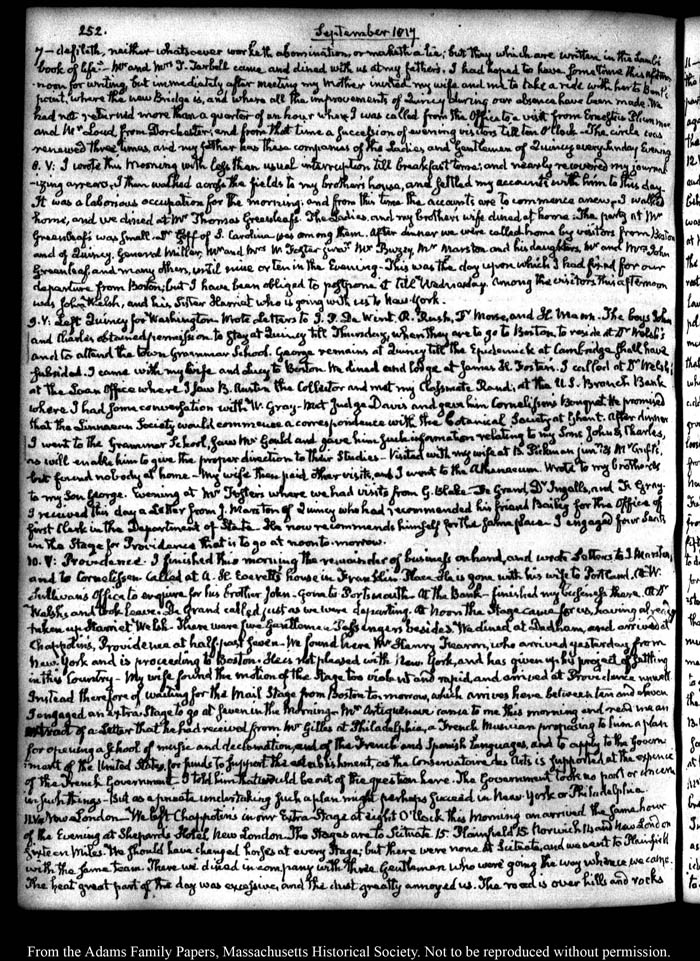 252. September 1817
7 — defileth, neither whatsoever worketh abomination, or maketh a lie; but they which are written in the Lamb's
book of life." — Mr and Mrs J. Tarbell came and dined with us at my fathers. I had hoped to have some time this after-
noon for writing, but immediately after meeting my Mother invited my wife and me to take a ride with her to Bent's
point, where the new Bridge is, and where all the improvements of Quincy during our absence have been made. We
had not returned more than a quarter of an hour when I was called from the Office to a visit from Ernestus Plummer
and Mr Loud from Dorchester; and from that time a succession of evening visitors till ten O'Clock — The circle was
renewed three times, and my father has these companies of the Ladies and Gentlemen of Quincy every Sunday Evening
8. V: I wrote this Morning with less than usual interruption till breakfast time; and nearly recovered my journal-
izing arrears, I then walked across the fields to my brothers house, and settled my accounts with him to this day.
It was a laborious occupation for the morning; and from this time the accounts are to commence anew. I walked
home, and we dined at Mr Thomas Greenleaf's. The Ladies, and my brothers wife dined at home. The party at Mr
Greenleaf's was small. Dr Goff of S. Carolina was among them. After dinner we were called home by visitors from Boston
and of Quincy, General Miller, Mr and Mrs W. Foster junr Mr Bussey, Mr Marston and his daughters, Mr and Mrs John
Greenleaf and many others, until nine or ten in the Evening — This was the day upon which I had fixed for our
departure from Boston; but I have been obliged to postpone it till Wednesday. Among the visitors this afternoon
was John Welsh, and his Sister Harriet who is going with us to New-York.
9. V: Left Quincy for Washington. Wrote Letters to J. P. De Wint, R. Rush, Dr Morse, and H. Mason. The boys John
and Charles obtained permission to stay at Quincy till Thursday, when they are to go to Boston to reside at Dr Welsh's
and to attend the town Grammar School. George remains at Quincy till the Epidemick at Cambridge shall have
subsided. I came with my wife and Lucy to Boston. We dined and lodge at James H. Foster's. I called at Dr Welsh's
at the Loan Office where I saw B. Austin the Collector and met my Classmate Rand; at the U.S. Branch Bank
where I had some conversation with W. Gray — Met Judge Davis and gave him Cornelissen's Bouquet He promised
that the Linnaean Society would commence a correspondence with the botanical Society at Ghent. After dinner
I went to the Grammar School, saw Mr Gould and gave him such information relating to my Sons John & Charles,
as will enable him to give the proper direction to their Studies — Visited with my wife at B. Pickman junr's & Mr Cruft's,
but found nobody at home — My wife then paid other visits, and I went to the Athenaeum. Wrote to my brother &
to my Son George. Evening at Mr Fosters where we had visits from G. Blake — De Grand, Dr Ingalls, and Fr. Gray.
I received this day a Letter from J. Marston of Quincy who had recommended his friend Bailey for the Office of
first Clerk in the Department of State. He now recommends himself for the same place. I engaged four seats
in the Stage for Providence that is to go at noon to-morrow.
10. V: Providence. I finished this morning the remainder of business on hand, and wrote Letters to J. Marston,
and to Cornelissen Called at A. H. Everett's house in Franklin Place. He is gone with his wife to Portland. At W.
Sullivans Office to enquire for his brother John — Gone to Portsmouth. At the Bank — finished my business there. At Dr
Welshs and took leave. De Grand called just as we were departing. At Noon the Stage came for us, having already
taken up Harriet Welsh. There were five Gentlemen Passengers besides. We dined at Dedham, and arrived at
Chappotins, Providence at half past seven — We found here Mr Henry Fearon, who arrived yesterday from
New York and is proceeding to Boston. He is not pleased with New. York, and has given up his project of settling
in this Country — My wife found the motion of the Stage too violent and rapid, and arrived at Providence unwell
Instead therefore of waiting for the Mail Stage from Boston to-morrow, which arrives here between ten and eleven
I engaged an extra Stage to go at seven in the Morning — Mr Artiguenave came to me this morning and read me an
extract of a Letter that he had received from Mr Gilles at Philadelphia, a French Musician proposing to him a plan
for opening a school of music and declamation, and of the French and Spanish Languages, and to apply to the Govern-
ment of the United States, for funds to support this establishment, as the Conservatoire des Arts is supported at the expence
of the French Government. I told him that would be out of the question here. The Government took no part or concern
in such things — But as a private undertaking such a plan might perhaps succeed in New York or Philadelphia.
11. V: New London — We left Chappotins in our Extra Stage at eight O'Clock this morning an arrived the same hour
of the Evening at Shepards Hotel, New London. The Stages are to Scituate 15. Plainfield 15 Norwich 14 and New London
sixteen Miles. We should have changed horses at every Stage; but there were none at Scituate, and we went to Plainfield
with the same team. There we dined in company with three Gentlemen who were going the way whence we came.
The heat great part of the day was excessive, and the dust greatly annoyed us. The road is over hills and rocks
From the Adams Family Papers, Massachusetts Historical Society. Not to be reproduced without permission.